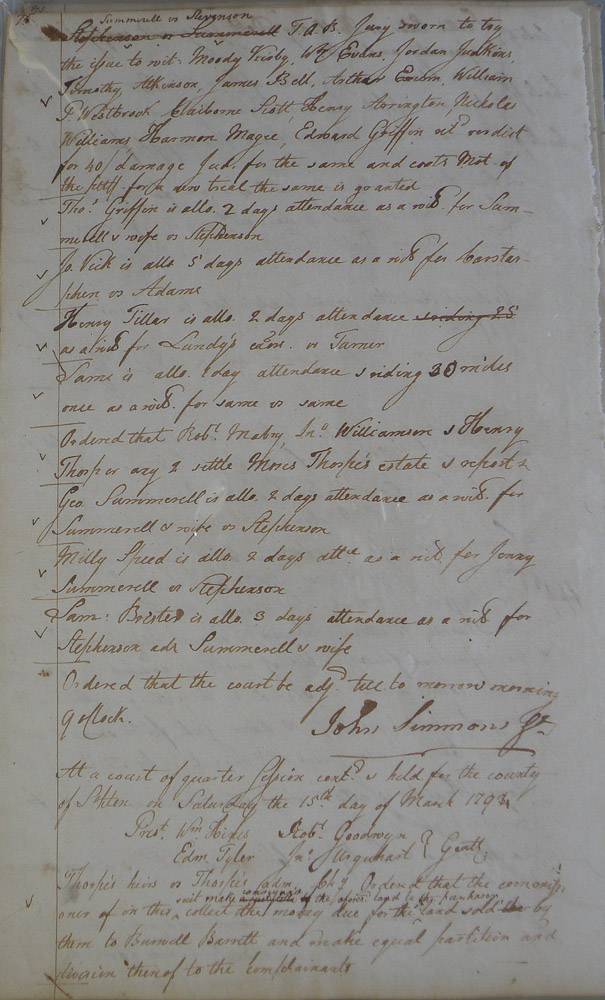 Summerell vs Stevenson
Stephenson vs Summerell T. A. B. Jury sworn to try
the issue to wit. Moody Kirby, Wm Evans, Jordan Judkins,
Timothy Atkinson, James Bell, Arthur Exum, William
P Westbrook, Claiborne Scott, Henry Arrington, Nicholas
Williams Harmon Magee, Edward Griffin verdict
for 40/ damage Jud. for the same and costs Mot. of
the pltff for a new treal the same is granted
Thos. Griffin is allo. 2 days attendance as a wits. for Sum-
merell & wife vs Stephenson
Jo. Vick is allo 5 days attendance as a wits for Carstar-
phen vs Adams
Henry Tillar is allo. 2 days attendance riding 25
as a wits for Lundy's exor. vs Turner
Same is allo. 1 day attendance & riding 30 miles
once as a wits. for same vs same
Ordered that Robt. Mabry, Jno. Williamson & Henry
Thorp or any 2 settle Moses Thorpe's estate & report &
Geo. Summerell is allo. 2 days attendance as a wits. for
Summerell & wife vs Stephenson
Milly Speed is allo. 2 days attce as a wits for Jenny
Summerell vs Stephenson
Sam: Brister is allo. 3 days attendance as a wits for
Stephenson ads Summerell & wife
Ordered that the court be adjd. till to morrow morning
9 oClock.
John Simmons Gt
At a court of quarter Session contd. & held for the county
of S.hpten on Saturday the 15th day of March 1793
Prest. Wm Hines Robt. Goodwyn
Edm. Tyler Jno. Urquhart } Gentl.
Thorpe's heirs vs Thorpe's adm. Ordered that the commissi-
suit make conveyance of the afores. land to the purchaser
oner of in this collect the money due for the land sold by
them to Burwell Barrett and make equal partition and
division thereof to the complainants